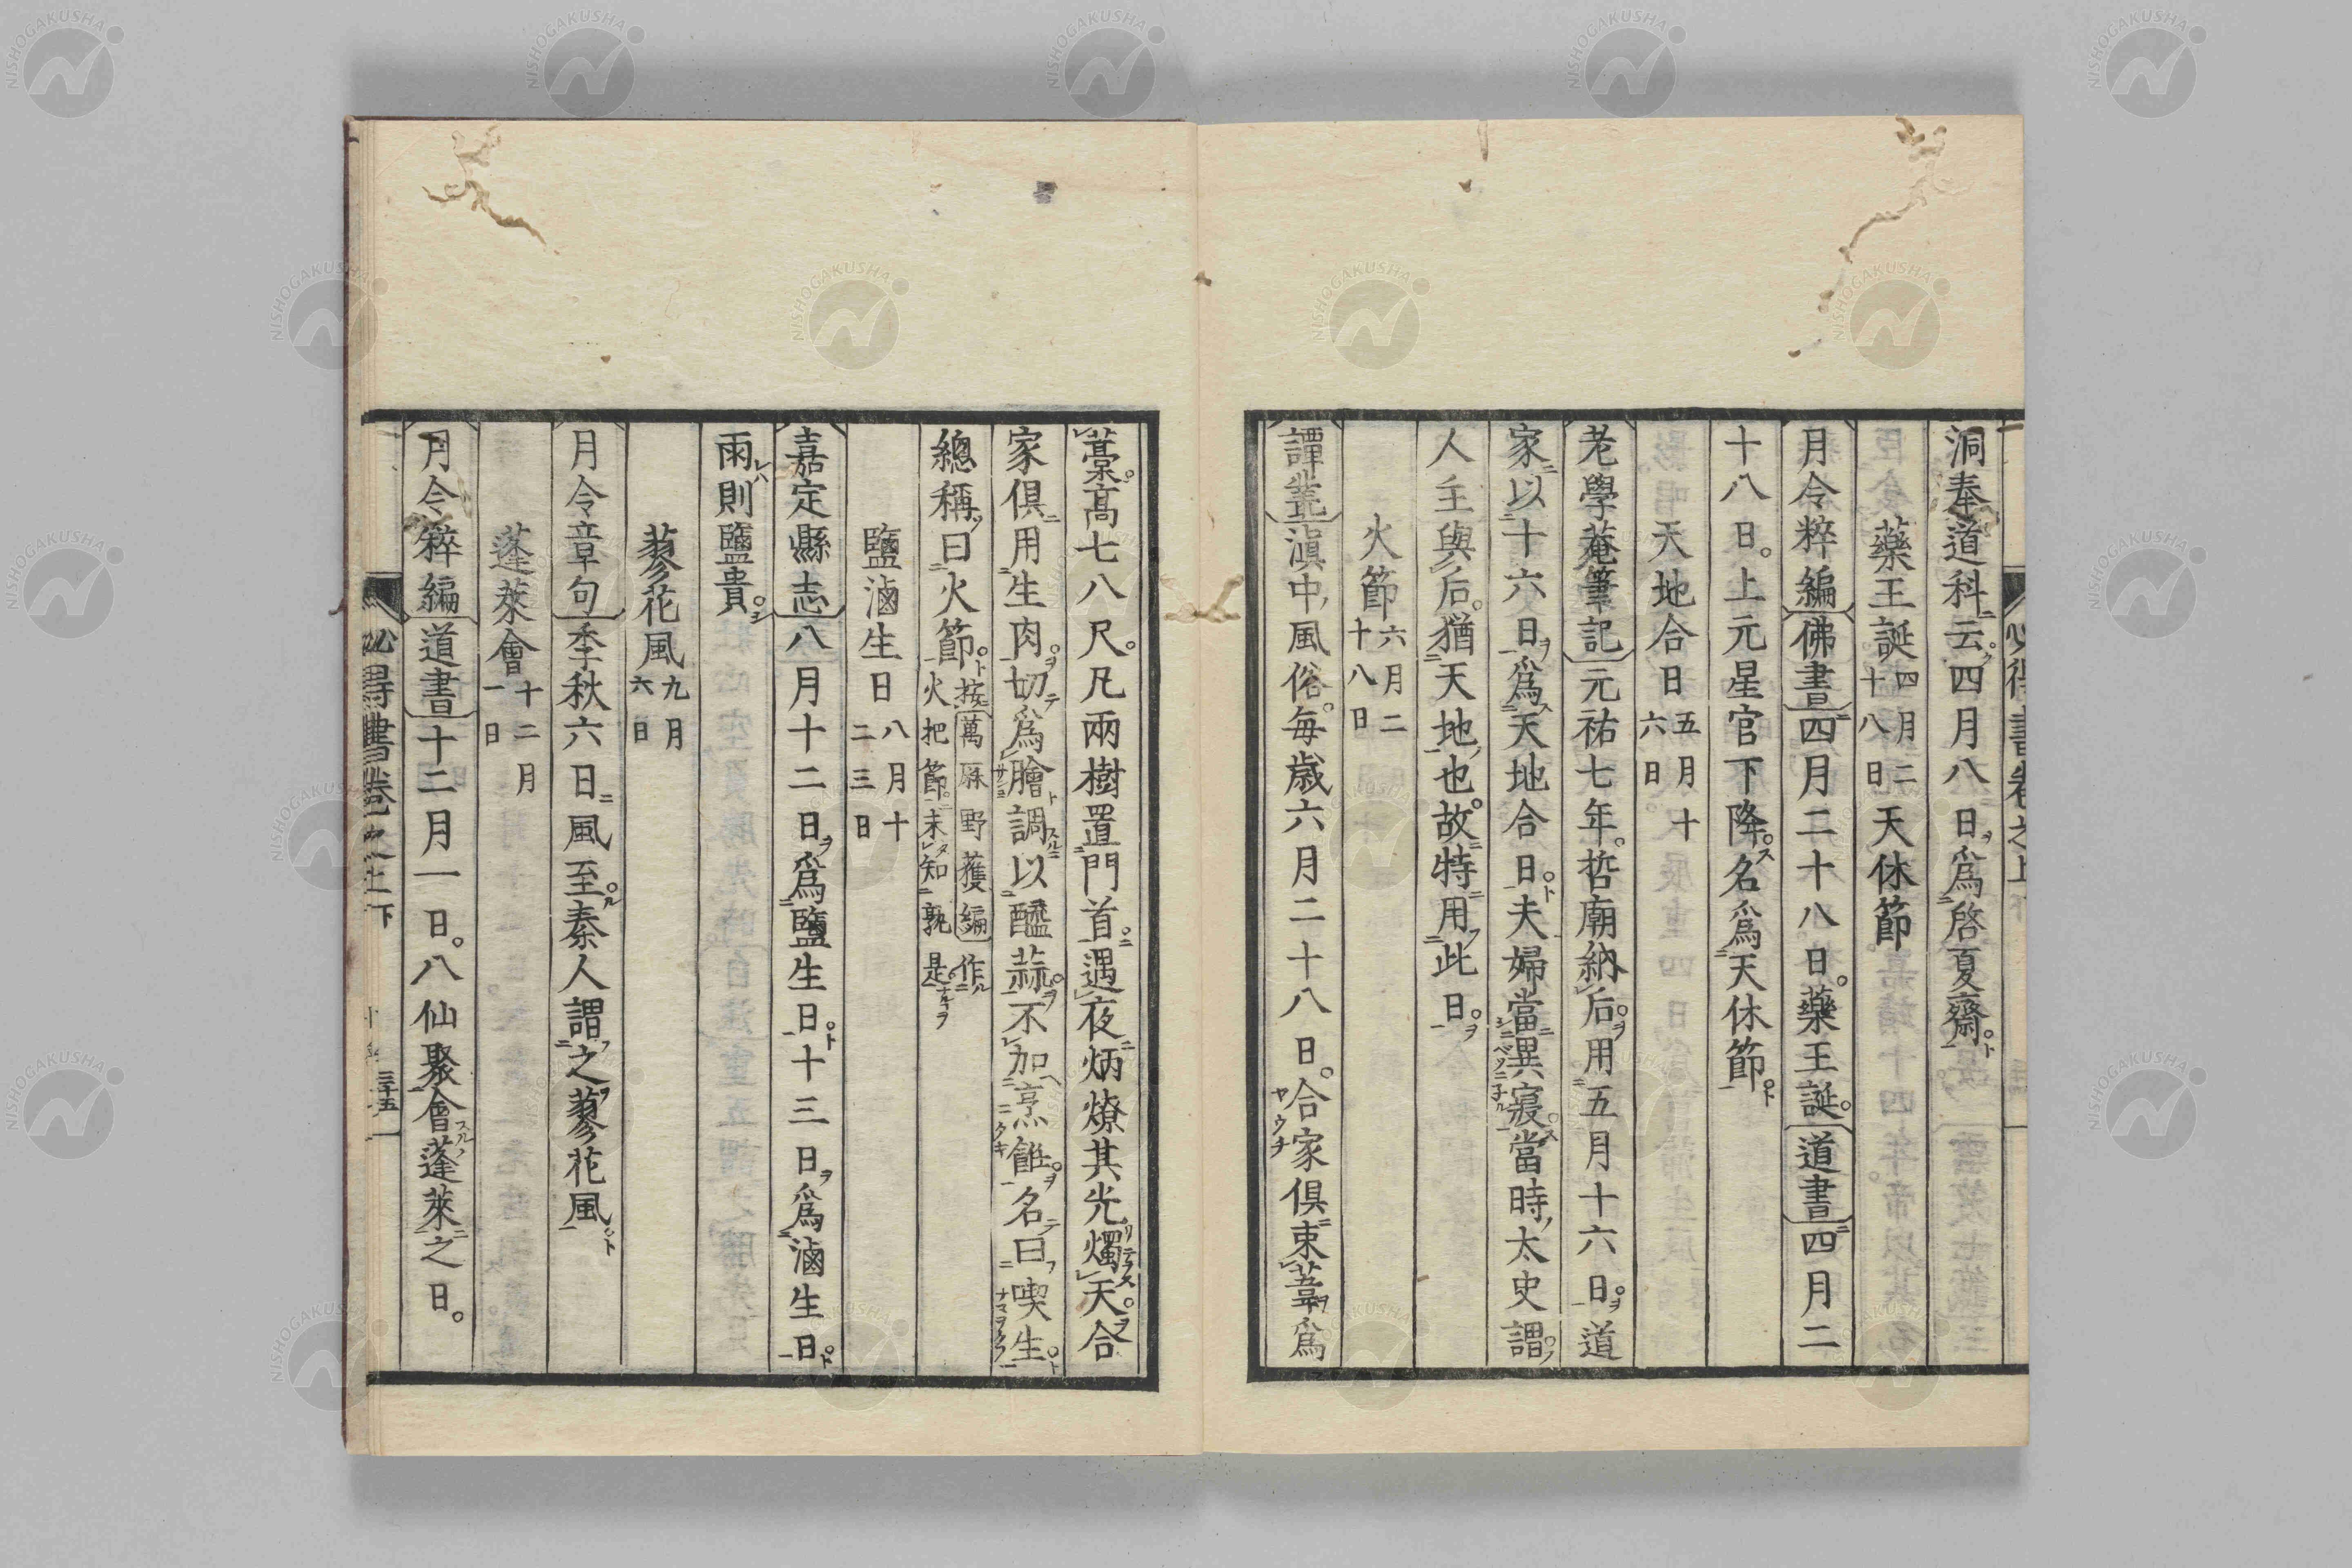 洞奉道科云四月八日爲啓夏齋
藥王誕四月二十八日 天休節
月令粹編佛書四月二十八日藥王誕道書四月二
十八日上元星官下降名爲天休節
天地合日五月十六日
老學菴筆記元祐七年哲廟納后用五月十六日道
家以十六日爲天地合日夫婦當異寢當時太史謂
人主與后猶天地也故特用此日
火節六月二十八日
譚叢滇中風俗毎歳六月二十八日合家俱束葦爲
藁高七八尺凡兩樹置門首遇夜炳燎其光燭天合
家俱用生肉切爲膾調以醯蒜不加烹飪名曰喫生
總稱曰火節按萬厤野獲編作火把節未知孰是
鹽滷生日八月十二三日
嘉定縣志八月十二日爲鹽生日十三日爲滷生日
雨則鹽貴
蓼花風九月六日
月令章句季秋六日風至秦人謂之蓼花風
蓬萊會十二月一日
月令粹編道書十二月一日八仙聚會蓬萊之日
NISHOGAKUSHA